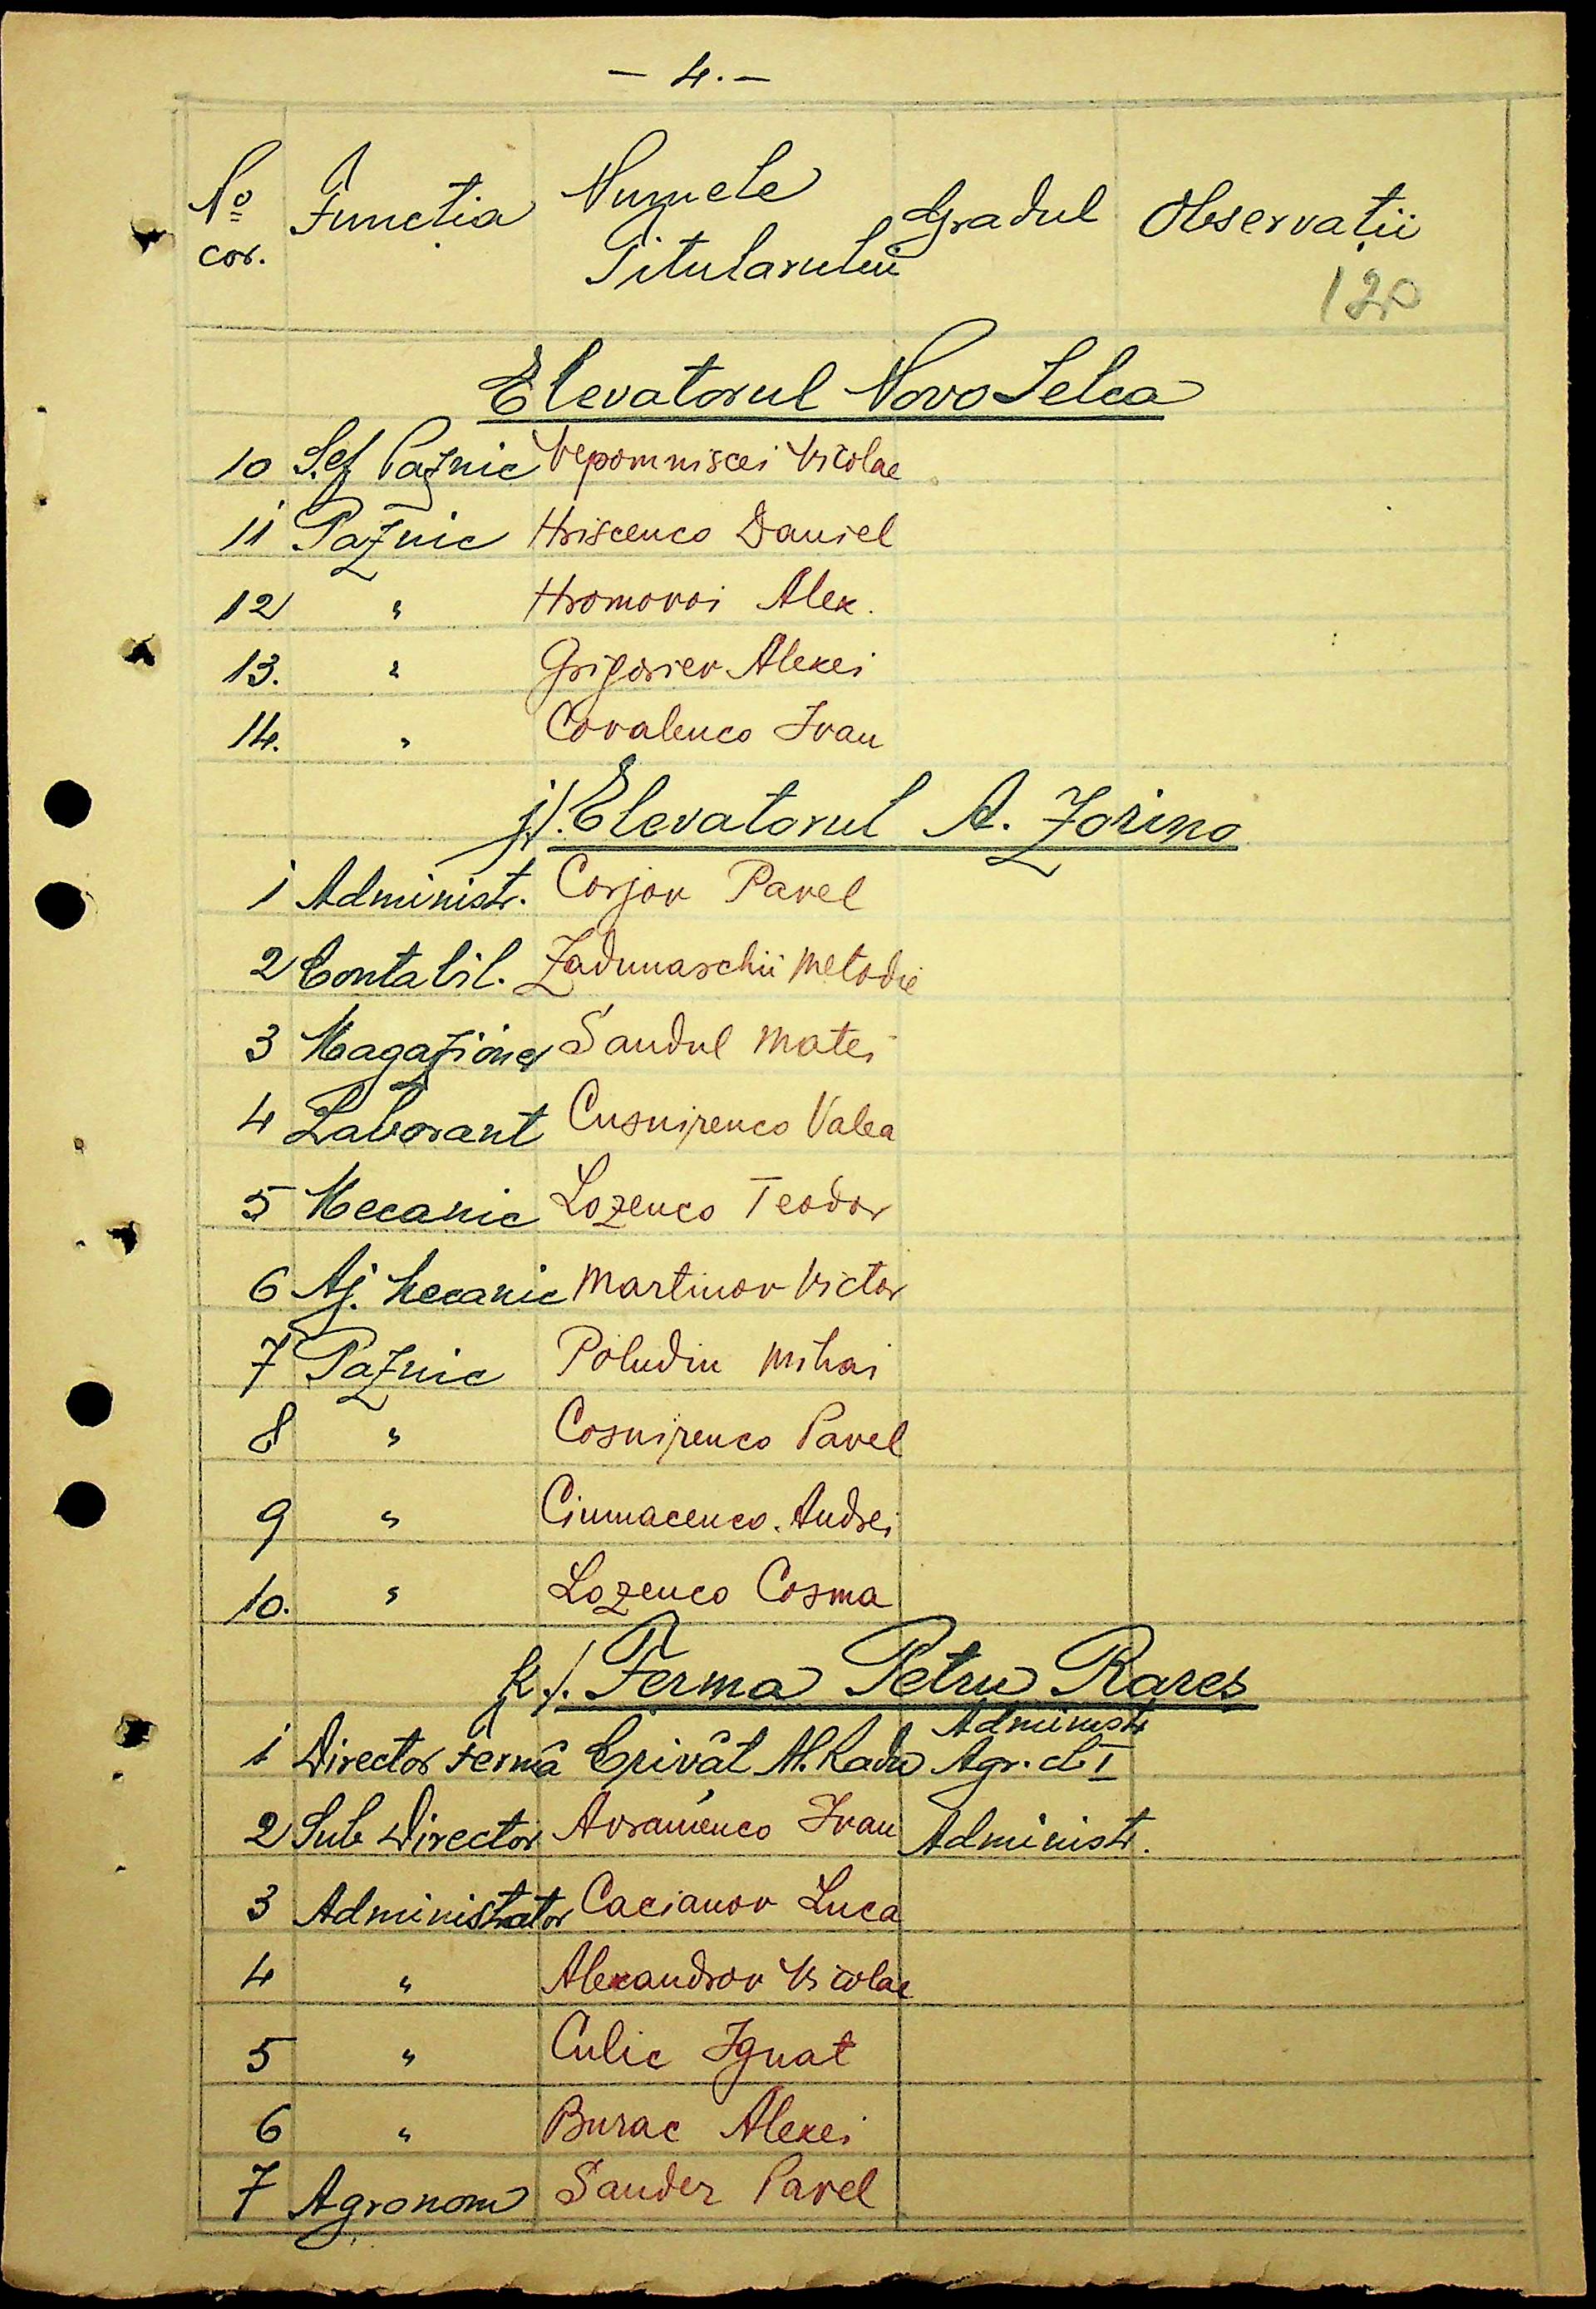 - 4. -
No cor. Functia Numele Titularului Gradul Observatii
120
Elevatorul Novo Selca
10 Sef Paznic Nepomniscei Nicolae
11 Paznic Hriscenco Daniel
12 " Hromovoi Alex.
13. " Grigoriev Alexei
14. " Covalenco Ivan
j). Elevatorul A. Zorino
1 Administr. Corjov Pavel
2 Contabil. Zadunaschii Metodie
3 Magazioner Sandul Matei
4 Laborant Cusnirenco Valea
5 Mecanic Lozenco Teodor
6 Aj. Mecanic Martinov Victor
7 Paznic Poludin Mihai
8 " Cosnirenco Pavel
9 " Ciumacenco. Andrei
10. " Lozenco Cosma
k). Ferma Petru Rares
1 Director Fermă Crivăt M. Radu Administr Agr. cl. I
2 Sub Director Avramenco Ivan Administr.
3 Administrator Cacianov Luca
4 " Alexandrov Nicolae
5 " Culic Ignat
6 " Burac Alexei
7 Agronom Sander Pavel